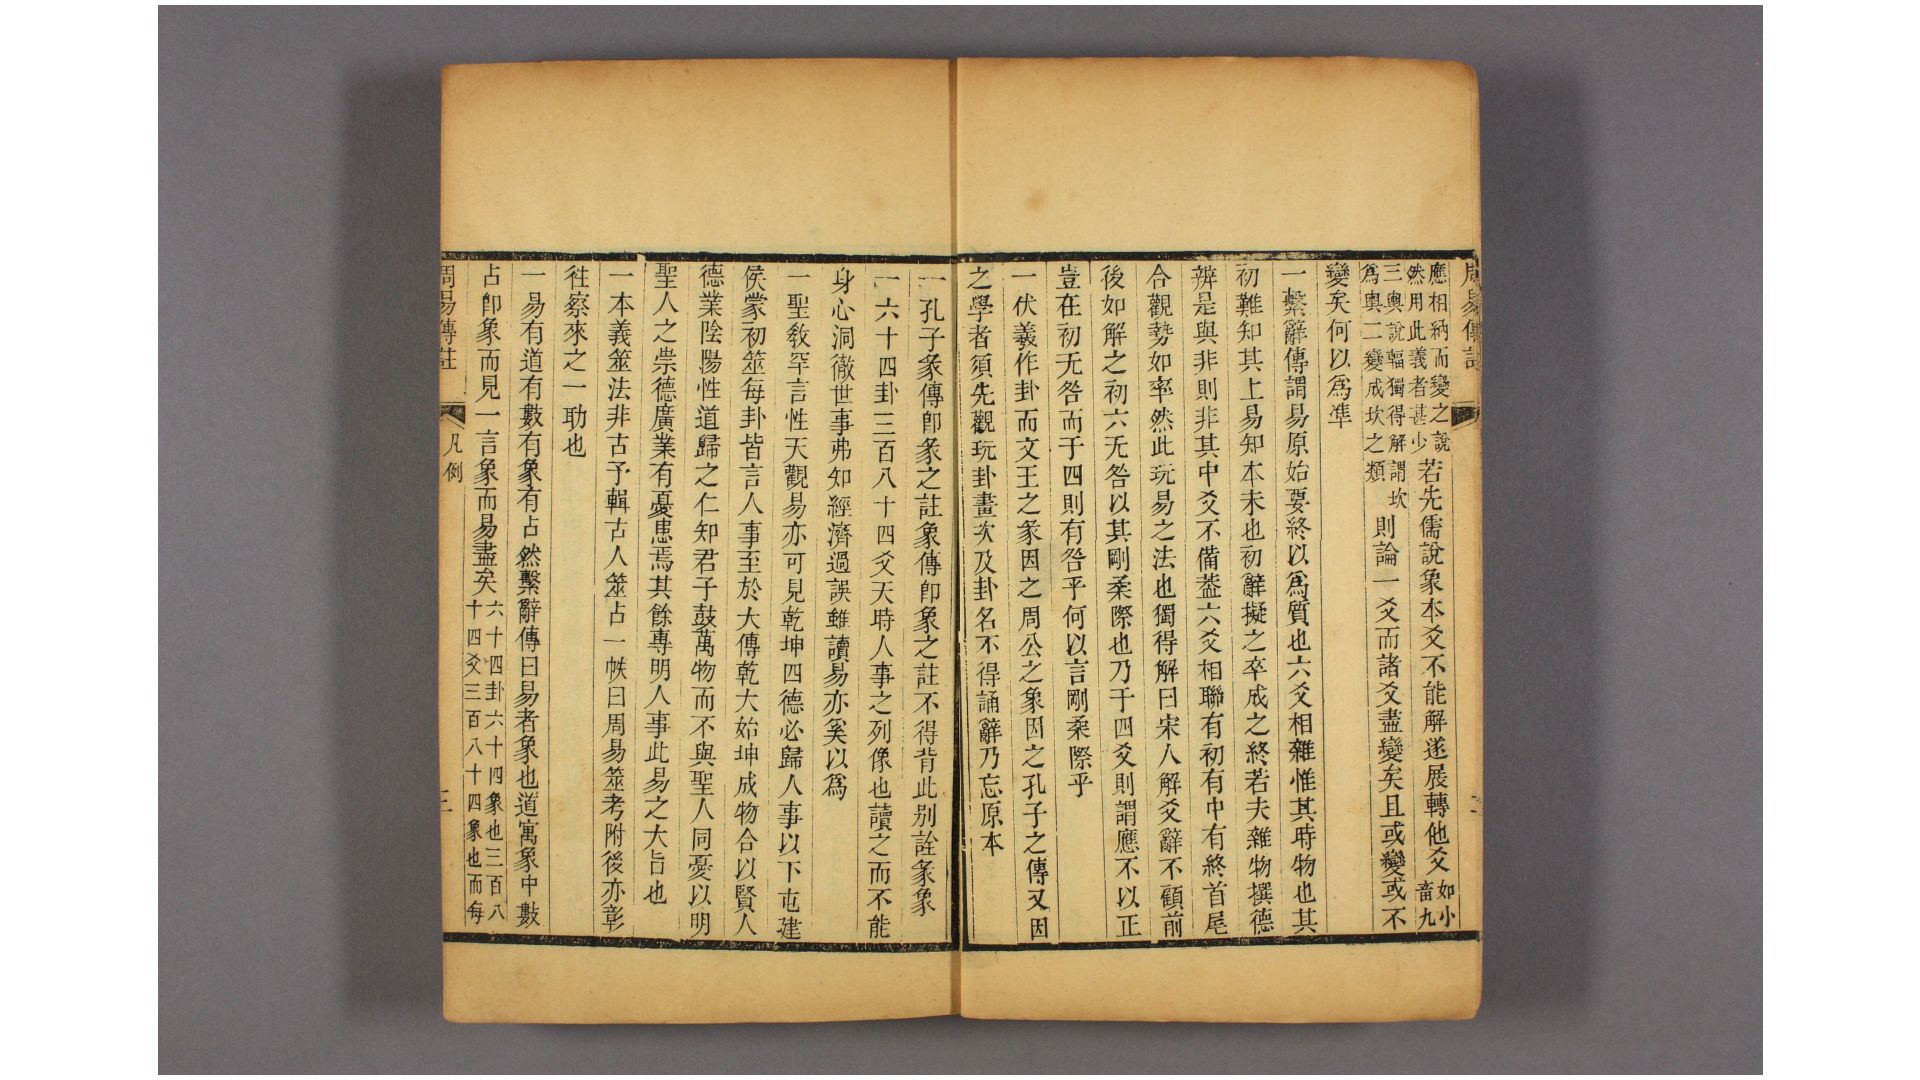 周易傳註
應相納而變之說
然用此義者甚少
若先儒說象本爻不能解遂展轉他爻
如小
畜九
三輿說輻獨得解謂坎
爲輿二變成坎之類
則論一爻而諸爻盡變矣且或變或不
變矣何以爲準
一繫辭傳謂易原始要終以爲質也六爻相雜惟其時物也其
初難知其上易知本末也初辭擬之卒成之終若夫雜物撰德
辨是與非則非其中爻不備葢六爻相聯有初有中有終首尾
合觀勢如率然此玩易之法也獨得解曰宋人解爻辭不顧前
後如解之初六无咎以其剛柔際也乃于四爻則謂應不以正
豈在初无咎而于四則有咎乎何以言剛柔際乎
一伏羲作卦而文王之彖因之周公之象因之孔子之傳又因
之學者須先觀玩卦畫次及卦名不得誦辭乃忘原本
一孔子彖傳卽彖之註象傳卽象之註不得背此别詮彖象
一六十四卦三百八十四爻天時人事之列像也讀之而不能
身心洞徹世事弗知經濟過誤雖讀易亦奚以爲
一聖教罕言性天觀易亦可見乾坤四德必歸人事以下屯建
侯蒙初筮每卦皆言人事至於大傳乾大始坤成物合以賢人
德業陰陽性道歸之仁知君子鼓萬物而不與聖人同憂以明
聖人之崇德廣業有憂患焉其餘專明人事此易之大旨也
一本義筮法非古予輯古人筮占一帙曰周易筮考附後亦彰
徃察來之一助也
一易有道有數有象有占然繫辭傳曰易者象也道寓象中數
占卽象而見一言象而易盡矣
六十四卦六十四象也三百八
十四爻三百八十四象也而每
周易傳註
凡例
三